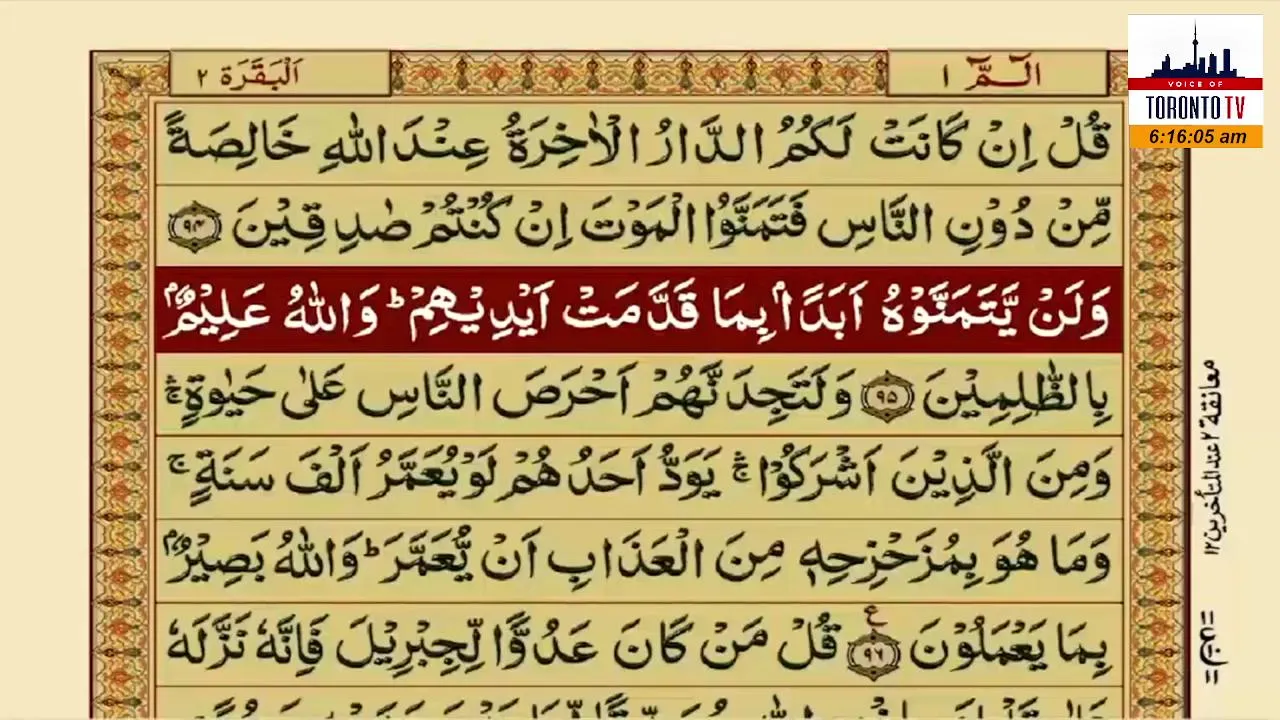 الٓمّٓ ۱
اَلْبَقَرَة ۲
VOICE OF
TORONTO TV
6:16:05 am
قُلْ اِنْ كَانَتْ لَكُمُ الدَّارُ الْاٰخِرَةُ عِنْدَ اللّٰهِ خَالِصَةً
مِّنْ دُوْنِ النَّاسِ فَتَمَنَّوُا الْمَوْتَ اِنْ كُنْتُمْ صٰدِقِيْنَ ۹۴
وَلَنْ يَّتَمَنَّوْهُ اَبَدًۢا بِمَا قَدَّمَتْ اَيْدِيْهِمْ ؕ وَاللّٰهُ عَلِيْمٌۢ
بِالظّٰلِمِيْنَ ۹۵ وَلَتَجِدَنَّهُمْ اَحْرَصَ النَّاسِ عَلٰى حَيٰوةٍ ۛۚ
وَمِنَ الَّذِيْنَ اَشْرَكُوْا ۛۚ يَوَدُّ اَحَدُهُمْ لَوْ يُعَمَّرُ اَلْفَ سَنَةٍ ۚ
وَمَا هُوَ بِمُزَحْزِحِهٖ مِنَ الْعَذَابِ اَنْ يُّعَمَّرَ ؕ وَاللّٰهُ بَصِيْرٌۢ
بِمَا يَعْمَلُوْنَ ۹۶ ع قُلْ مَنْ كَانَ عَدُوًّا لِّجِبْرِيْلَ فَاِنَّهٗ نَزَّلَهٗ
معانقة ۲ عند المتأخرين ۱۲